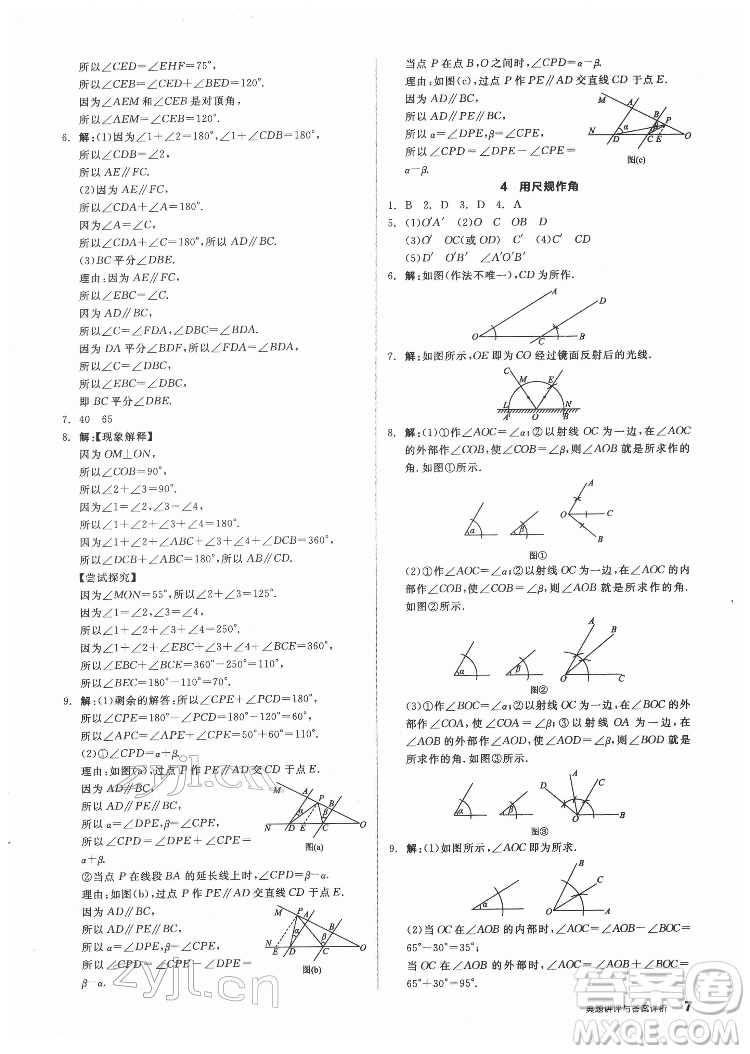 所以∠CED=∠EHF=75°,
所以∠CEB=∠CED+∠BEF=120°.
因为∠AEM和∠CEB是对顶角,
所以∠AEM=∠CEB=120°.
6. 解:(1)因为∠1+∠2=180°,∠1+∠CDB=180°,
所以∠CDB=∠2,
所以AE∥FC.
(2)因为AE∥FC,
所以∠CDA+∠A=180°.
因为∠A=∠C,
所以∠CDA+∠C=180°,
所以AD∥BC.
(3)BC平分∠DBE.
理由:因为AE∥FC,
所以∠EBC=∠C.
因为AD∥BC,
所以∠C=∠FDA,∠CBD=∠BDA.
因为DA平分∠BDF,所以∠FDA=∠BDA,
所以∠C=∠DBC,
所以∠EBC=∠DBC,
即BC平分∠DBE.
7. 40 65
8. 解:【现象解释】
因为OM⊥ON,
所以∠COB=90°,
所以∠2+∠3=90°.
因为∠1=∠2,∠3=∠4,
所以∠1+∠2+∠3+∠4=180°.
因为∠1+∠2+∠3+∠4+∠DCB+∠ABC=360°,
所以∠DCB+∠ABC=180°,所以AB∥CD.
【尝试探究】
因为∠MON=55°,所以∠2+∠3=125°.
因为∠1=∠2,∠3=∠4,
所以∠1+∠2+∠3+∠4=250°.
因为∠1+∠2+∠EBC+∠3+∠4+∠BCE=360°,
所以∠EBC+∠BCE=360°-250°=110°,
所以∠BEC=180°-110°=70°.
9. 解:(1)剩余的解答:∠CPE+∠PCD=180°,
所以∠CPE=180°-∠PCD=180°-120°=60°,
所以∠APC=∠APE+∠CPE=50°+60°=110°.
(2)①∠CPD=α+β.
理由:如图(a),过点P作PE∥AD交CD于点E.
因为AD∥BC,
所以AD∥PE∥BC,
所以α=∠DPE,β=∠CPE,
所以∠CPD=∠DPE+∠CPE=
α+β.
M A P B α β N D E C O
图(a)
②当点P在线段BA的延长线上时,∠CPD=
β-α.
理由:如图(b),过点P作PE∥AD交直线CD于点E.
因为AD∥BC,
所以AD∥PE∥BC,
所以α=∠DPE,β=∠CPE,
所以∠CPD=∠CPE-∠DPE=
β-α.
M P A B α β N E D C O
图(b)
当点P在点B,O之间时,∠CPD=α-β.
理由:如图(c),过点P作PE∥AD交直线CD于点E.
因为AD∥BC,
所以AD∥PE∥BC,
所以α=∠DPE,β=∠CPE,
所以∠CPD=∠DPE-∠CPE=
α-β.
M A B P α β N D C E O
图(c)
4 用尺规作角
1. B 2. D 3. D 4. A
5. (1)O′A′ (2)O C OB D
(3)O′ OC(或OD) C′ (4)C′ CD
(5)D′ O′B′ ∠A′O′B′
6. 解:如图(作法不唯一),∠DCB为所作.
A D O C B
7. 解:如图所示,OE即为CO经过镜面反射后的光线.
C M E L N A O B
8. 解:(1)①作∠AOC=∠α;②以射线OC为一边,在∠AOC
的外部作∠COB,使∠COB=∠β,∠AOB就是所求作的
角.如图①所示.
α β A O C B
图①
(2)①作∠AOC=∠α;②以射线OC为一边,在∠AOC的
内部作∠COB,使∠COB=∠β,∠AOB就是所求作的角.
如图②所示.
α β A B O C
图②
(3)①作∠BOC=∠α;②以射线OC为一边,在∠BOC的
外部作∠COA,使∠COA=∠β;③以射线OA为一边,在
∠AOB的外部作∠AOD,使∠AOD=∠β,∠BOD就是
所求作的角.如图③所示.
α β D A C O B
图③
9. 解:(1)如图所示,∠AOC即为所求.
α B C O A
(2)当OC在∠AOB的内部时,∠BOC=∠AOB-∠AOC=
65°-30°=35°;
当OC在∠AOB的外部时,∠BOC=∠AOB+∠AOC=
65°+30°=95°.
典题讲评与答案详析 7
zyjl.cn
zyjl.cn